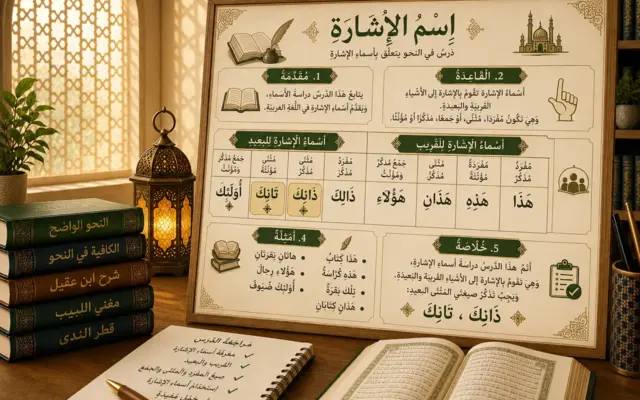 اِسْمُ الإِشَارَة
درسٌ في النحو يتعلّق بأسماءِ الإشارةِ
1. مُقَدِّمَة
يتابعُ هَذا الدَّرسُ دراسةَ الأسماءِ،
ويُقدِّمُ أسماءَ الإشارةِ في اللّغةِ العربيةِ.
2. الْقَاعِدَة
أسماءُ الإشارةِ تقومُ بالإشارةِ إلى الأشياءِ
القريبةِ والبعيدةِ.
وهِيَ تكونُ مُفرَدًا، مُثنّى، أو جَمعًا، مذكّرًا أو مؤنّثًا.
أَسْمَاءُ الإِشَارَةِ لِلْقَرِيبِ
أَسْمَاءُ الإِشَارَةِ لِلْبَعِيدِ
مُفْرَدٌ مُذَكَّرٌ
مُفْرَدَةٌ مُؤَنَّثَةٌ
مُثَنَّى مُذَكَّرٌ
جَمْعُ مُذَكَّرٍ وَمُؤَنَّثٍ
مُفْرَدٌ مُذَكَّرٌ
مُثَنَّى مُذَكَّرٌ
مُثَنَّى مُؤَنَّثَةٌ
جَمْعُ مُذَكَّرٍ وَمُؤَنَّثٍ
هَذَا
هَذِهِ
هَذَانِ
هَؤُلَاءِ
ذَالِكَ
ذَانِكَ
تَانِكَ
أُولَئِكَ
4. أَمْثِلَة
هَذَا كِتَابٌ
هَذِهِ كُرَّاسَةٌ
تِلْكَ بَقَرَةٌ
هَذَانِ كِتَابَانِ
هاتَانِ بَقَرَتَانِ
هَؤُلَاءِ رِجَالٌ
أُولَئِكَ ضُيُوفٌ
5. خُلَاصَة
أتمَّ هذا الدَّرسُ دراسةَ أسماءِ الإشارةِ،
وهي تقومُ بالإشارةِ إلى الأشياءِ القريبةِ والبعيدةِ.
ويَجِبُ تَذَكُّرُ صيغتَي المُثَنَّى البعيدِ:
ذَانِكَ ، تَانِكَ
النحو الواضح
الكافية في النحو
شرح ابن عقيل
مغني اللبيب
قطر الندى
مراجعة الدرس
معرفة أسماء الإشارة
القريب والبعيد
صيغ المفرد والمثنى والجمع
استخدام أسماء الإشارة